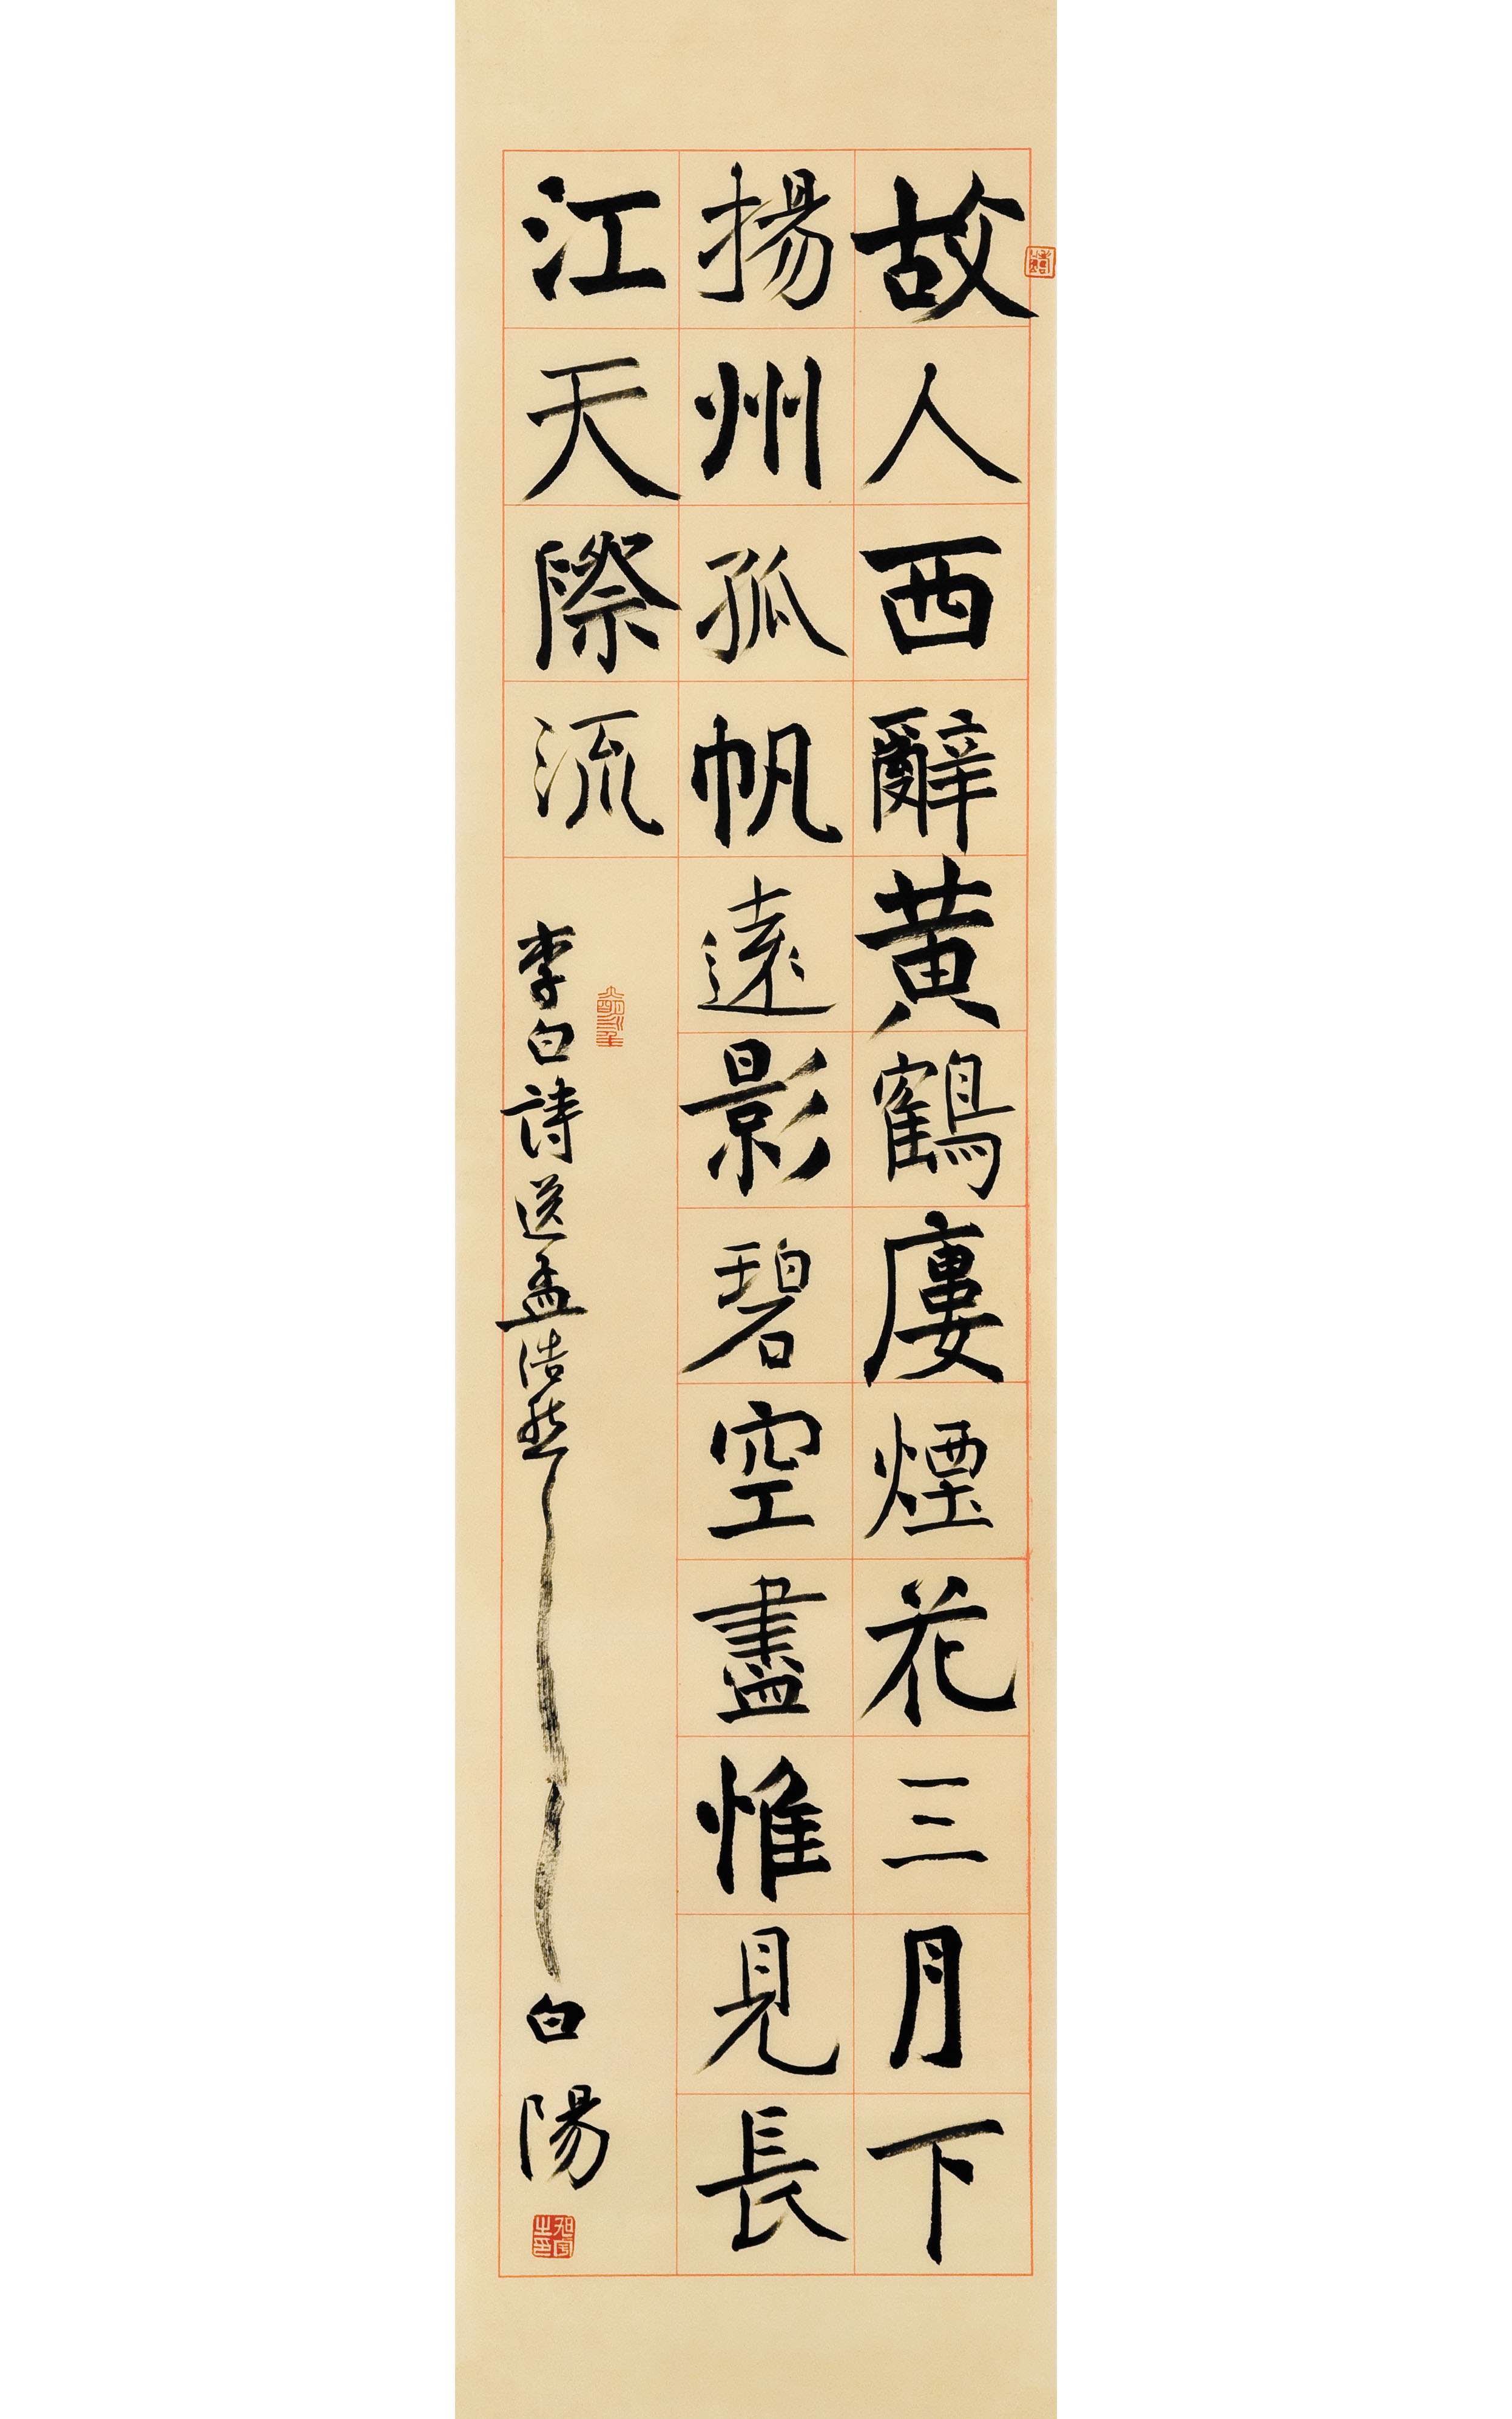 故人西辭黄鶴廔煙花三月下
揚州孤帆遠影碧空盡惟見長
江天際流
李白詩送孟浩然 白陽
旭宇之印